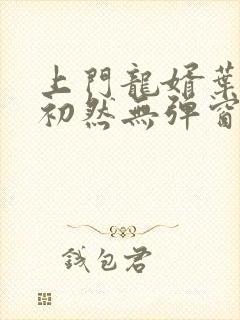 上門龍婿葉
初然無彈窗
錢包君